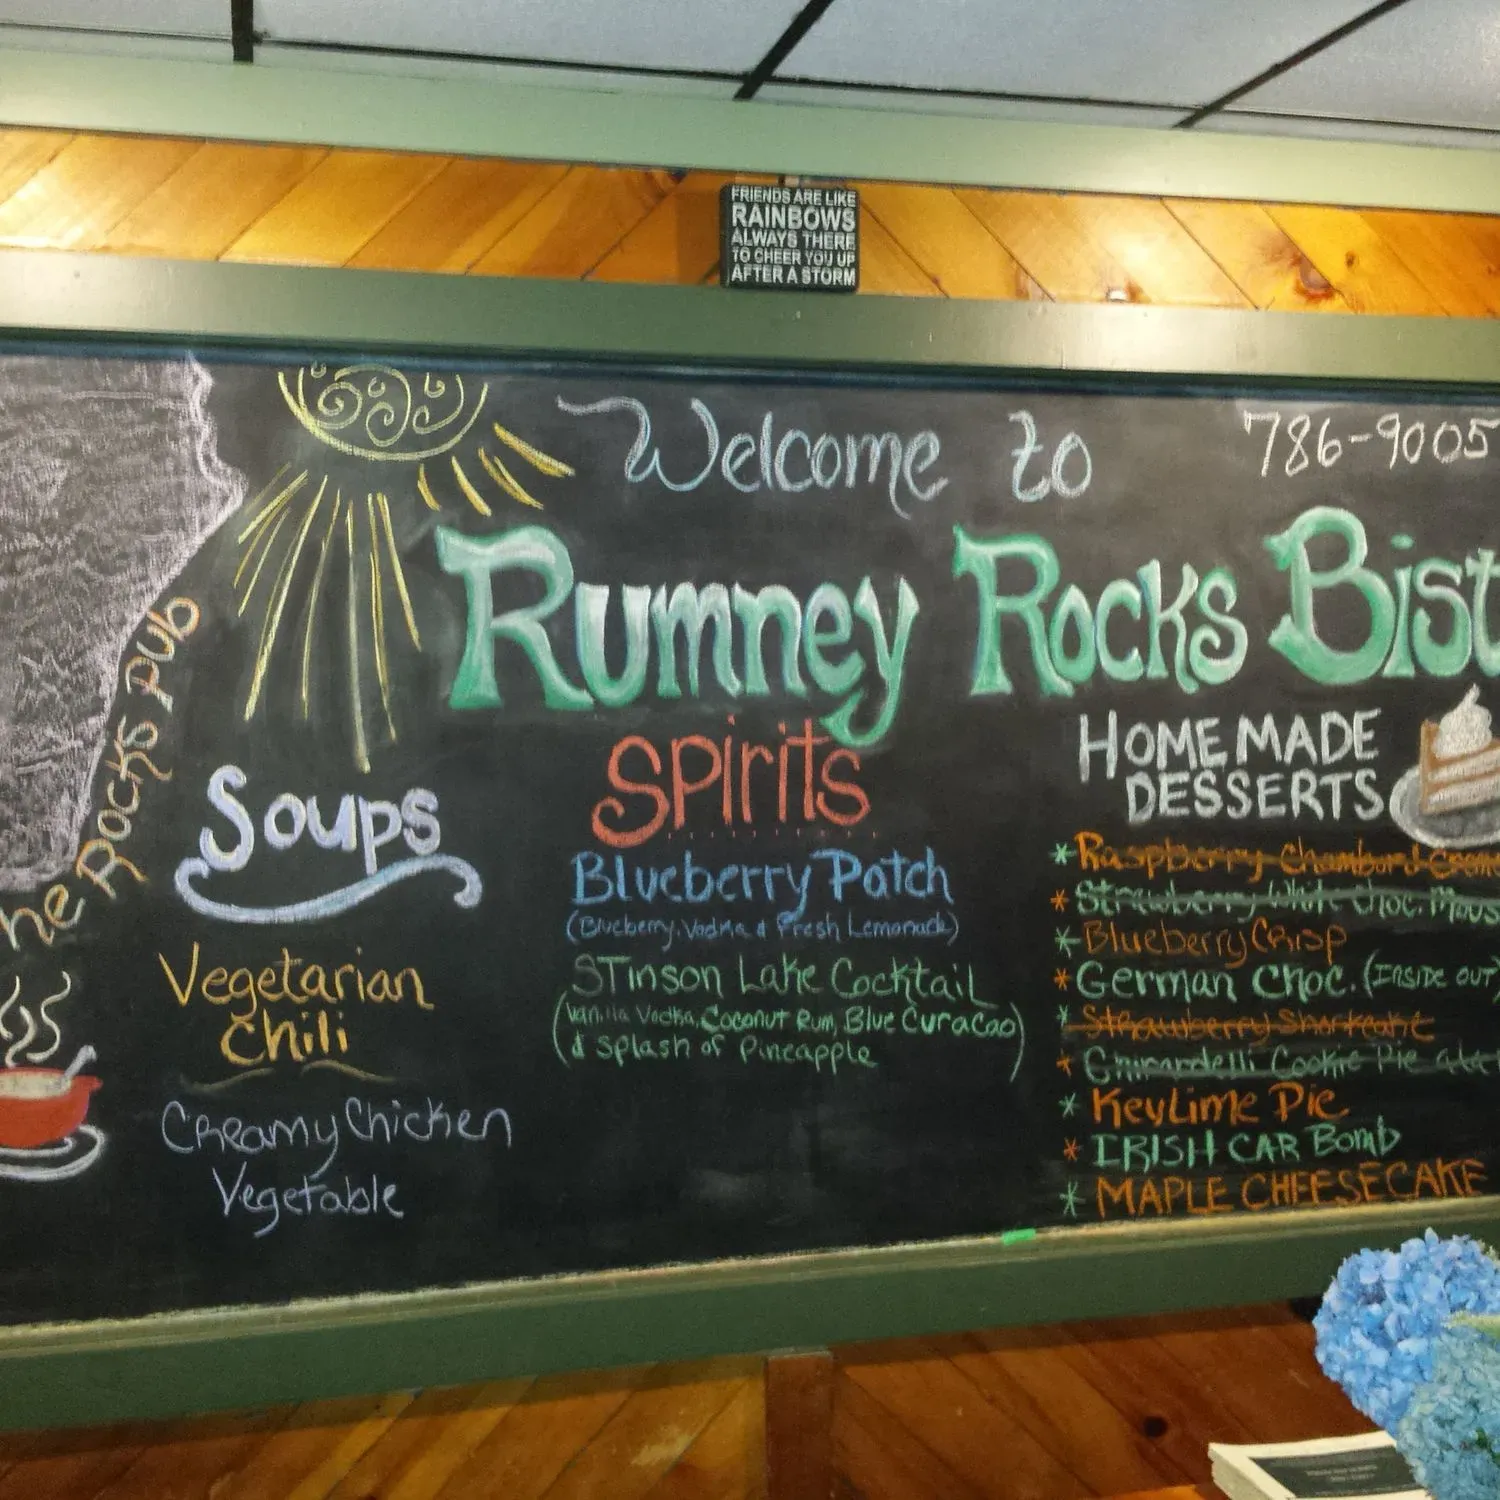 FRIENDS ARE LIKE
RAINBOWS
ALWAYS THERE
TO CHEER YOU UP
AFTER A STORM
Welcome to
786-9005
Rumney Rocks Bist
he Rocks Pub
Soups
Vegetarian
Chili
Creamy Chicken
Vegetable
Spirits
Blueberry Patch
(Blueberry, Vodka & Fresh Lemonade)
STinson Lake Cocktail
(Vanilla Vodka, Coconut Rum, Blue Curacao)
& splash of Pineapple
HOMEMADE
DESSERTS
*Raspberry Chambord Creme
*Strawberry White Choc. Mous
*Blueberry Crisp
*German Choc. (INSIDE OUT)
*Strawberry Shortcake
*Ghirardelli Cookie Pie ala
*Key Lime Pie
*IRISH CAR Bomb
*MAPLE CHEESECAKE